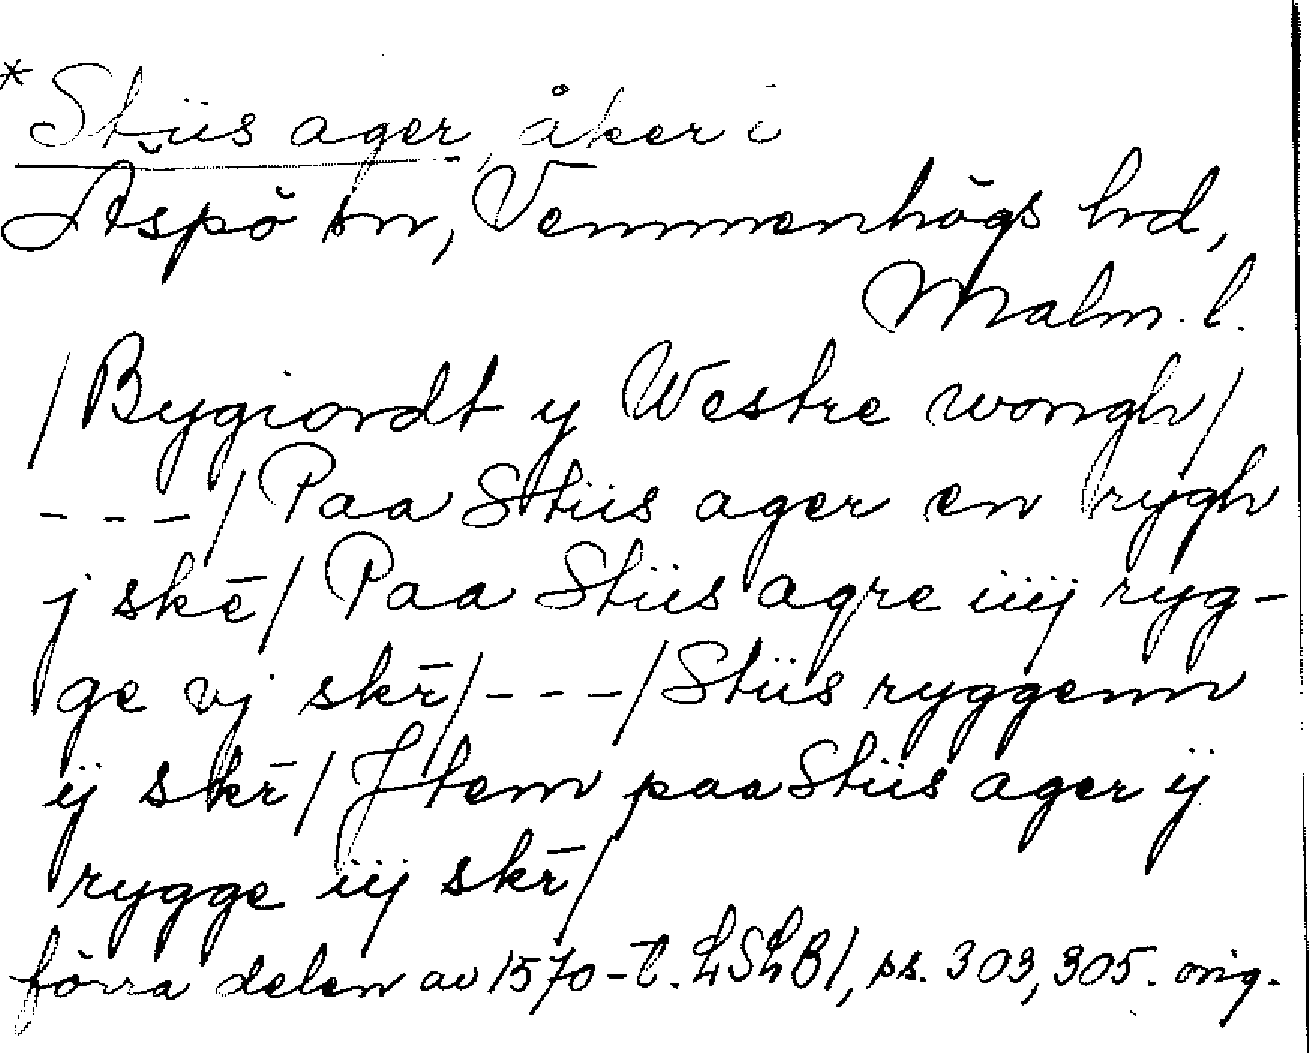 * Stiis ager, åker i
Äspö sn, Vemmenhögs hd,
Malm. l.
/Bygiordt y Westre wongh/
---/Paa Stiis ager en rygh
j skē/ Paa Stiis agre iiij ryg-
ge vj skr̄/---/Stiis ryggenn
ij skr̄/ Jtem paa Stiis ager ij
rygge iij skr̄/
förra delen av 1570-t. LSLB1, ss. 303, 305. orig.